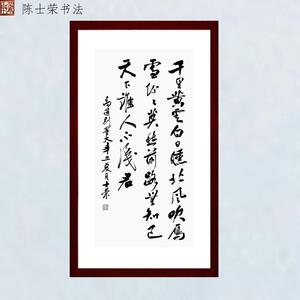 陈士荣书法
千里黄云白日曛北风吹雁
雪纷々莫愁前路无知己
天下谁人不识君
高适别董大辛丑夏月士荣